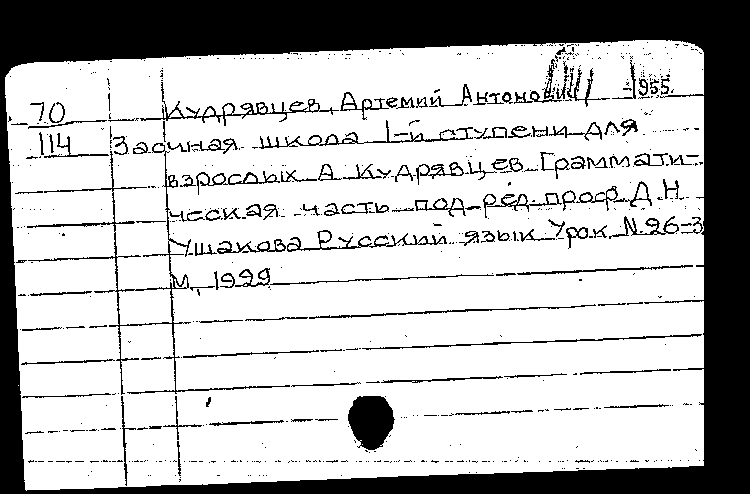 70 Кудрявцев, Артемий Антонович -1955
114 Заочная школа I-й ступени для
взрослых А Кудрявцев Граммати-
ческая часть под ред. проф. Д. Н
Ушакова Русский язык Урок N. 26-3
М., 1929